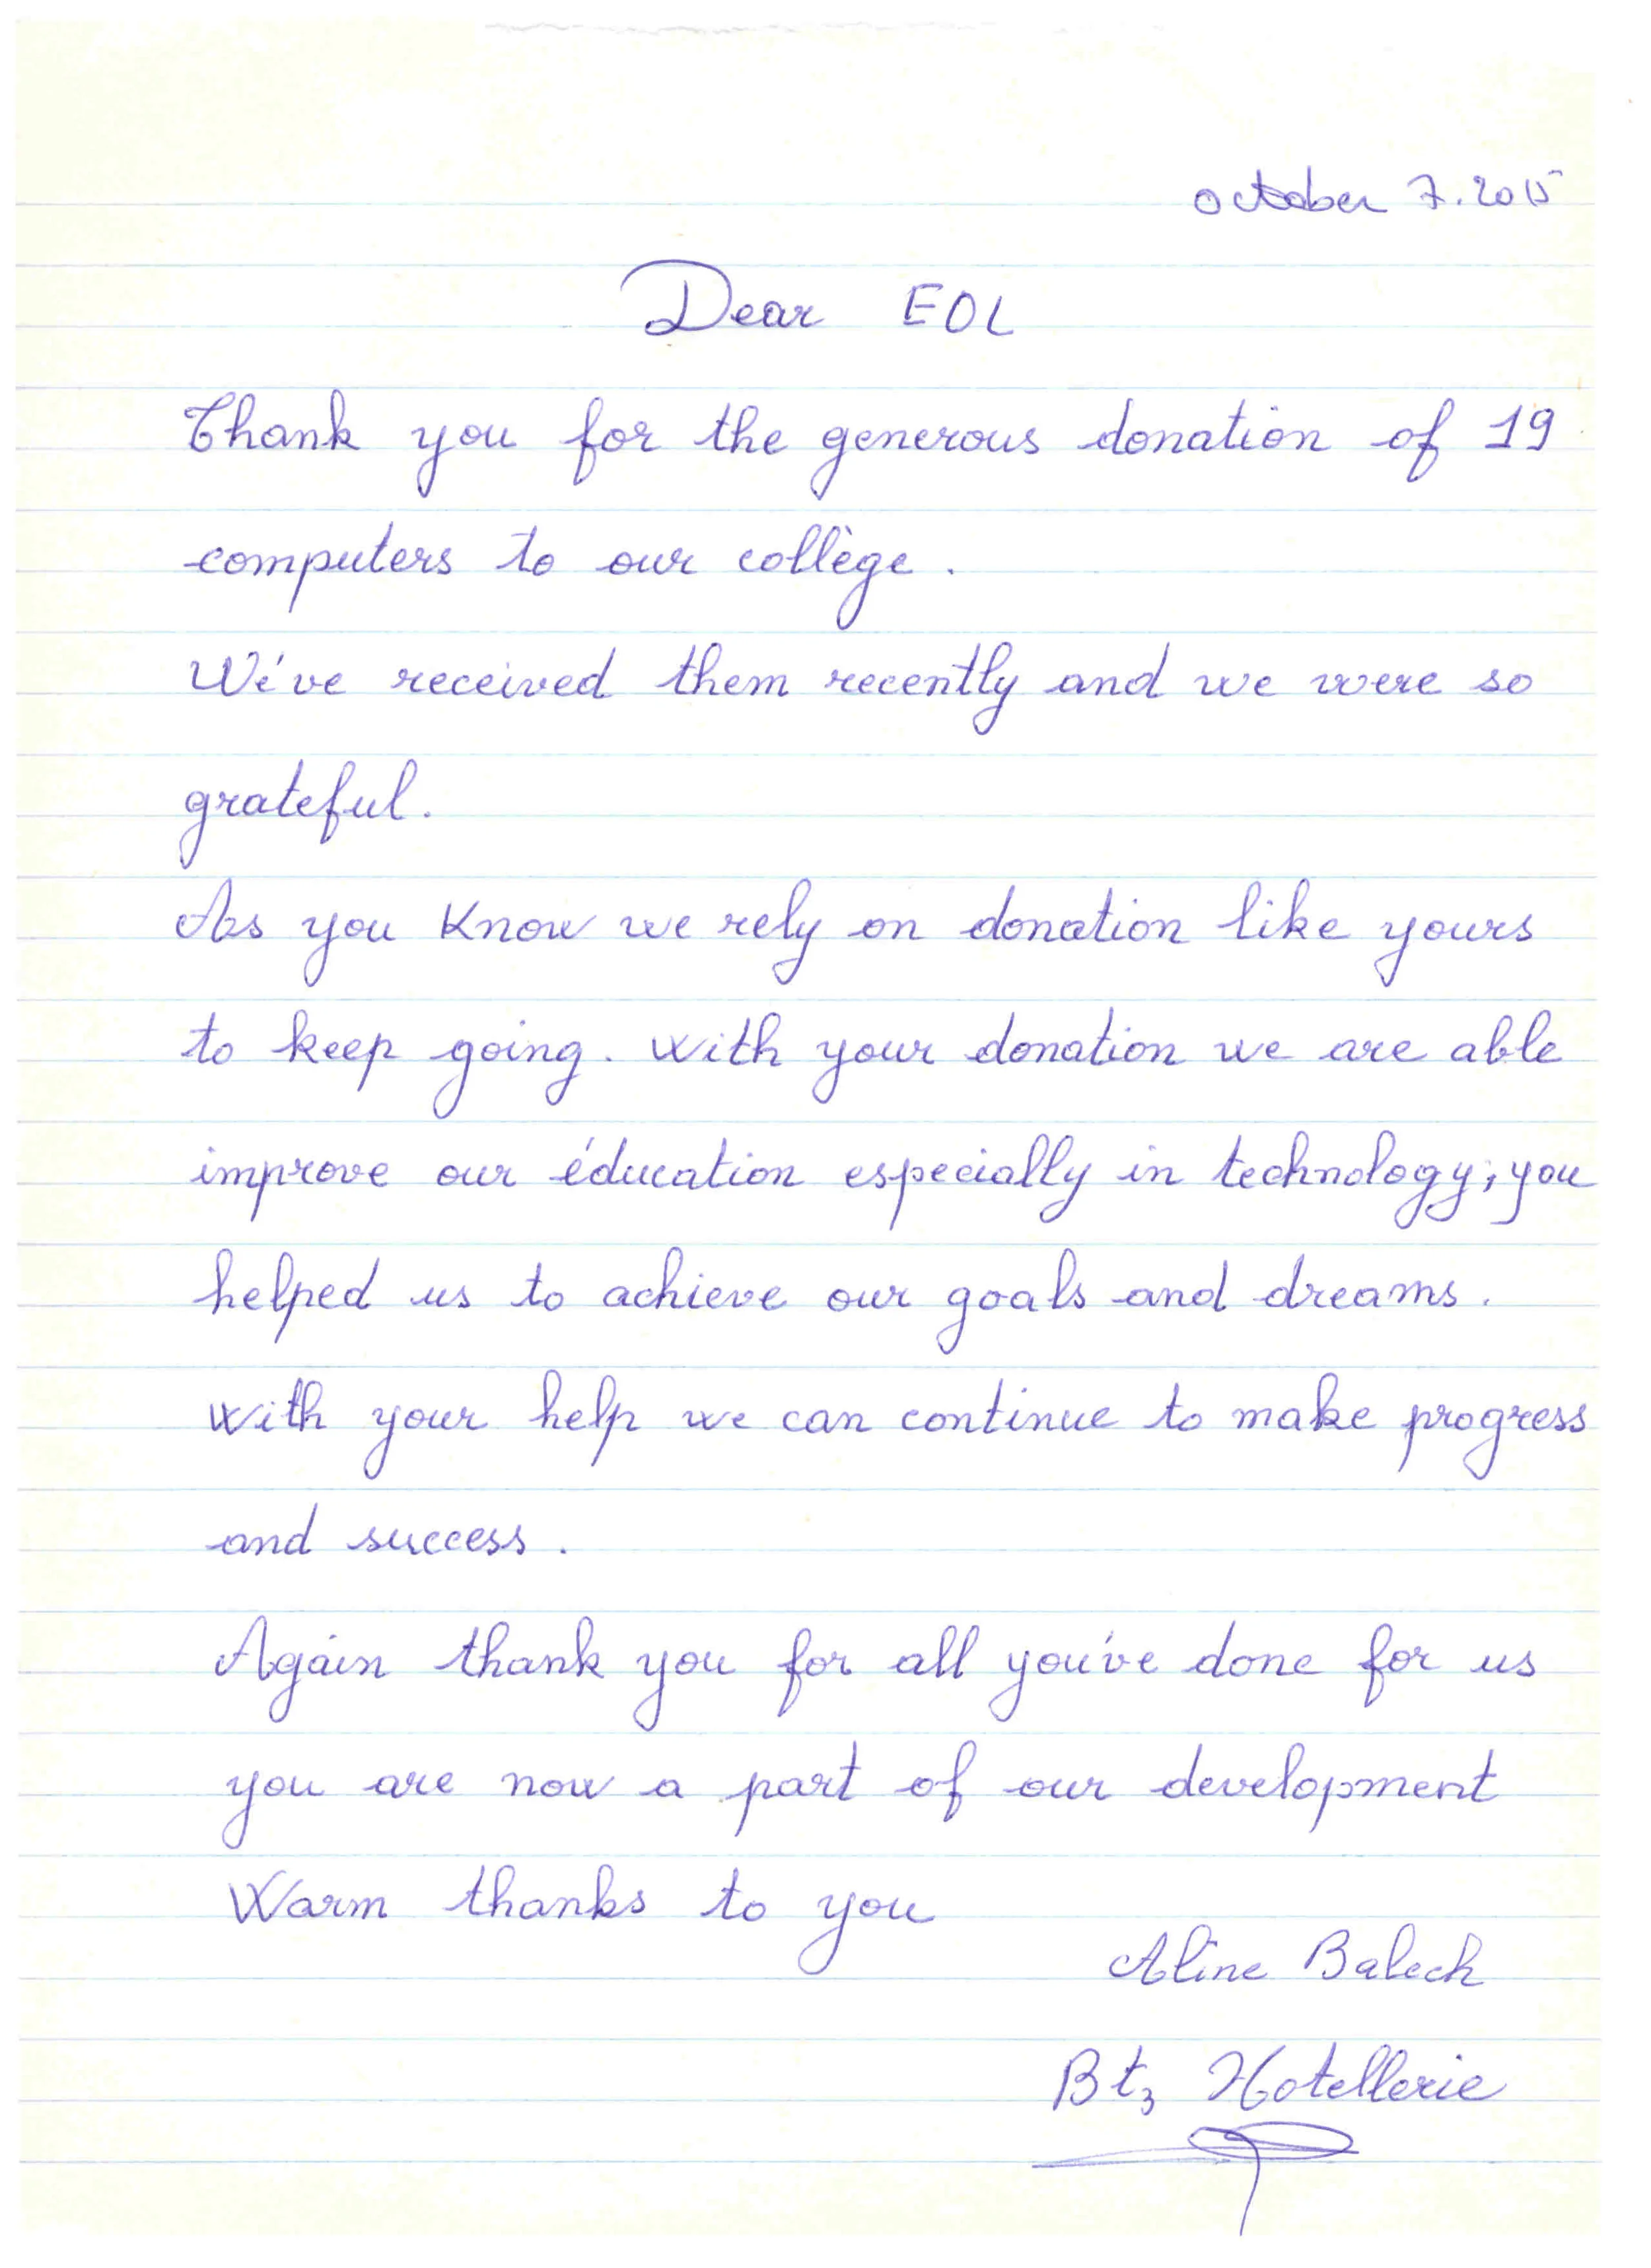 october 7. 2015
Dear EOL
Thank you for the generous donation of 19
computers to our collège.
Wé've received them recently and we were so
grateful.
As you Know we rely on donation like yours
to keep going. with your donation we are able
improve our éducation especially in technology; you
helped us to achieve our goals and dreams.
with your help we can continue to make progress
and success.
Again thank you for all you've done for us
you are now a part of our development
Warm thanks to you
Aline Balech
Bt3 Hotellerie